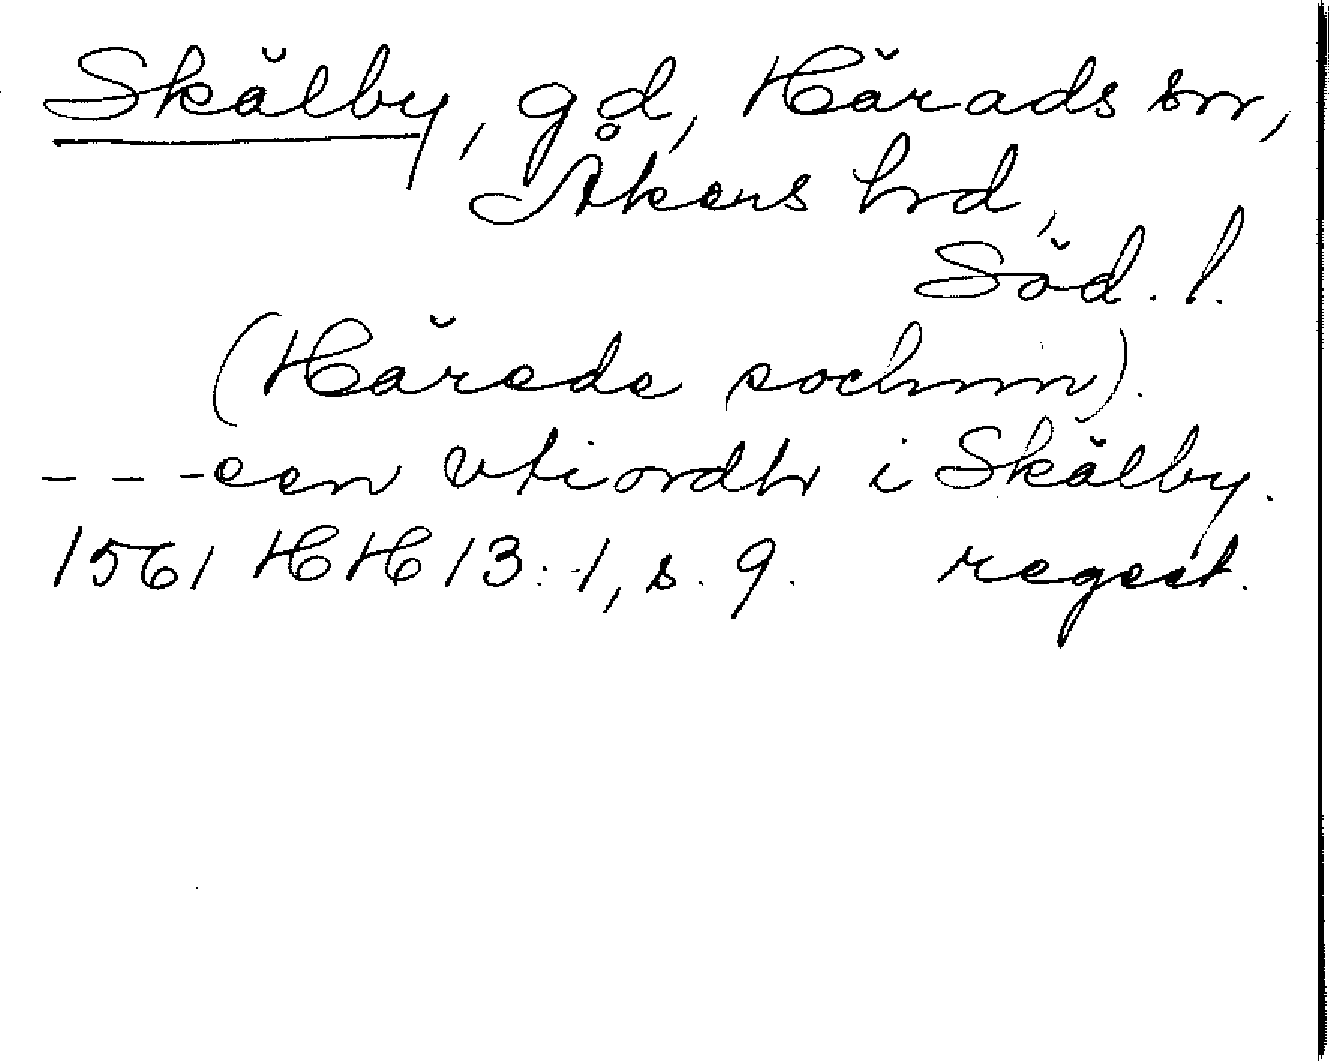 Skälby, gd, Härads sn,
Åkers hrd,
Söd. l.
(Härede sochnn).
- - - een vtiordh i Skälby.
1561 HH 13:1, s. 9. regest.